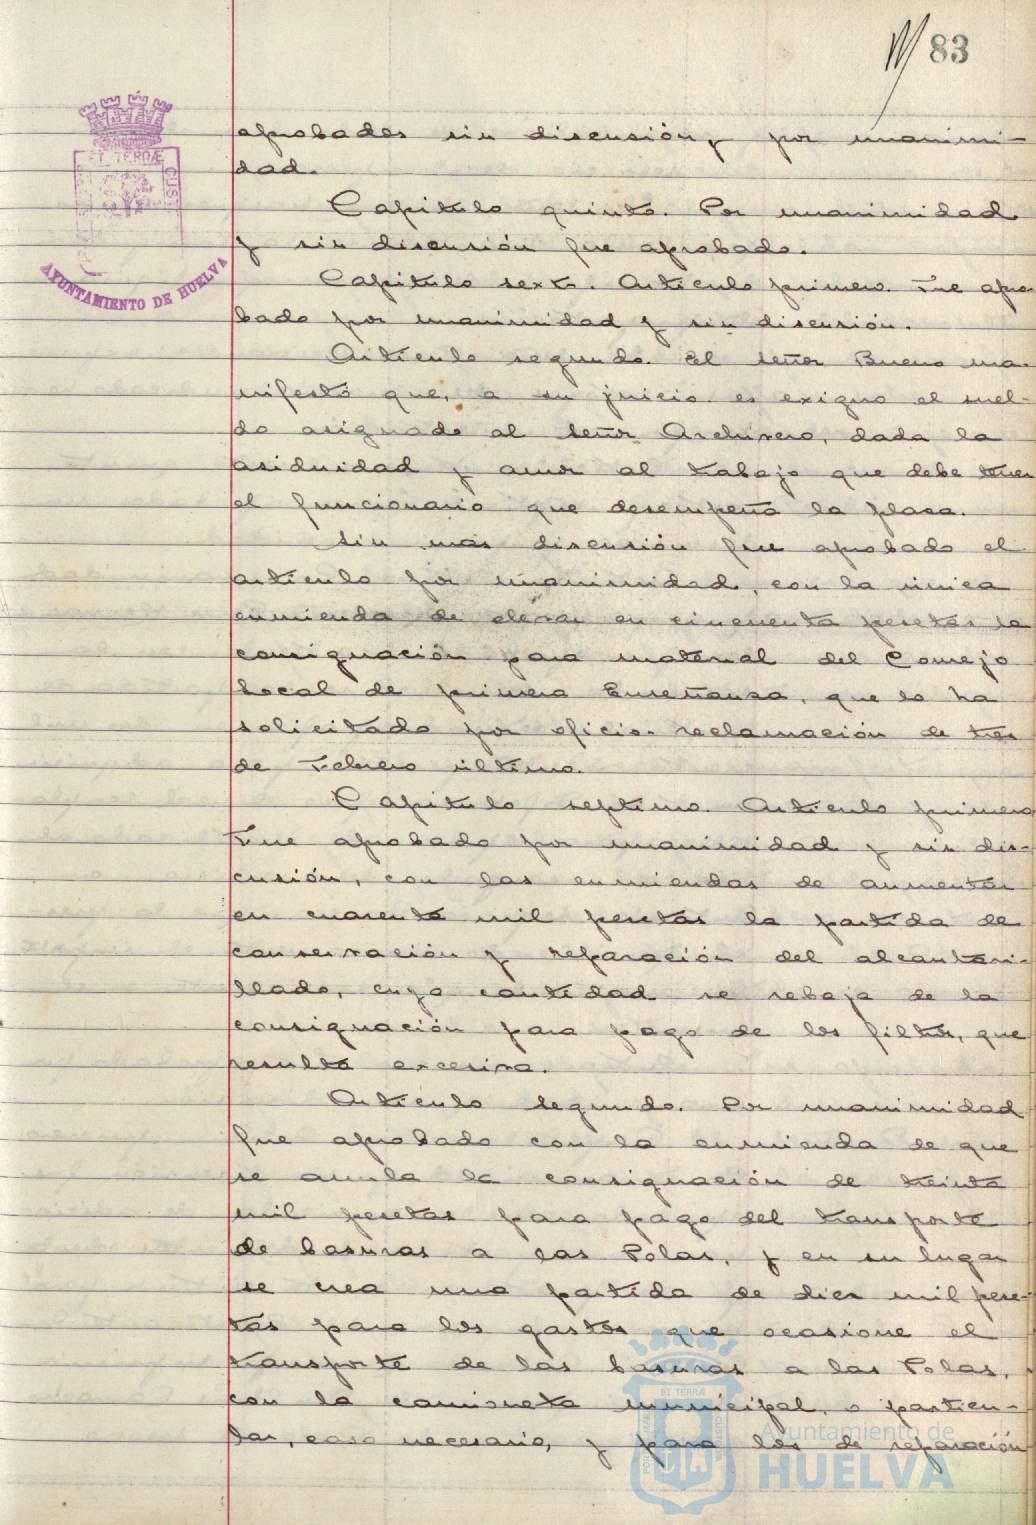 83
aprobados sin discusión, y por unanimi-
dad.
Capitulo quinto. Por unanimidad
y sin discusión fue aprobado.
Capitulo sexto. Articulo primero. Fue apro
bado por unanimidad y sin discusión.
Articulo segundo. El señor Bueno ma-
nifestó que, a su juicio es exiguo el suel-
do asignado al señor Archivero, dada la
asiduidad y amor al trabajo que debe tener
el funcionario que desempeña la plaza.
Sin más discusión fue aprobado el
articulo por unanimidad, con la única
enmienda de elevar en cincuenta pesetas la
consignación para material del Consejo
Local de primera Enseñanza, que lo ha
solicitado por oficio-reclamación de tres
de Febrero último.
Capitulo septimo. Articulo primero
Fue aprobado por unanimidad y sin dis-
cusión, con las enmiendas de aumentar
en cuarenta mil pesetas la partida de
conservación y reparación del alcantari-
llado, cuya cantidad se rebaja de la
consignación para pago de los filtros, que
resulta excesiva.
Articulo segundo. Por unanimidad
fue aprobado con la enmienda de que
se anula la consignación de treinta
mil pesetas para pago del transporte
de basuras a las Polas, y en su lugar
se crea una partida de diez mil pese-
tas para los gastos que ocasione el
transporte de las basuras a las Polas,
con la camioneta municipal, o particu-
lar, caso necesario, y para los de reparación
ET TERRÆ CUST
AYUNTAMIENTO DE HUELVA
Ayuntamiento de
HUELVA